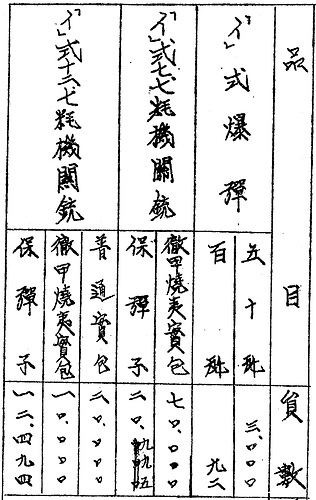 品目
員数
「イ」式爆彈
五十瓩
三、〇〇〇
百瓩
九二
「イ」式七、七粍機關銃
徹甲燒夷實包
七〇、〇〇〇
保彈子
二〇、九九五
「イ」式十二、七粍機關銃
普通實包
二〇、〇〇〇
徹甲燒夷實包
一〇、〇〇〇
保彈子
一二、四九四